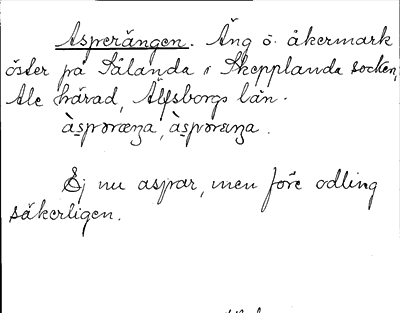 Asperängen. Äng o. åkermark
öster på Sålanda i Skepplanda socken,
Ale härad, Älfsborgs län.
àspəræŋa, àspəræŋa.
Ej nu aspar, men före odling
säkerligen.